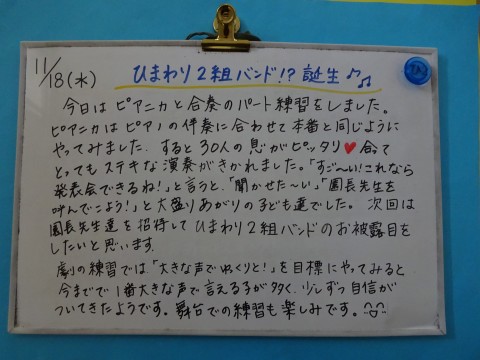 11/18(水) ひまわり2組バンド!? 誕生♪♫
今日は ピアニカと合奏のパート練習をしました。
ピアニカは ピアノの伴奏に合わせて本番と同じように
やってみました。すると30人の息がピッタリ♥合って
とってもステキな演奏がきかれました。「すご〜い!これなら
発表会できるね!」と言うと、「聞かせた〜い」「園長先生を
呼んでこよう!」と大盛りあがりの子ども達でした。次回は
園長先生達を招待して ひまわり2組バンドのお披露目を
したいと思います。
劇の練習では「大きな声でゆっくりと!」を目標にやってみると
今までで1番大きな声で言える子が多く、少しずつ自信が
ついてきたようです。舞台での練習も楽しみです。